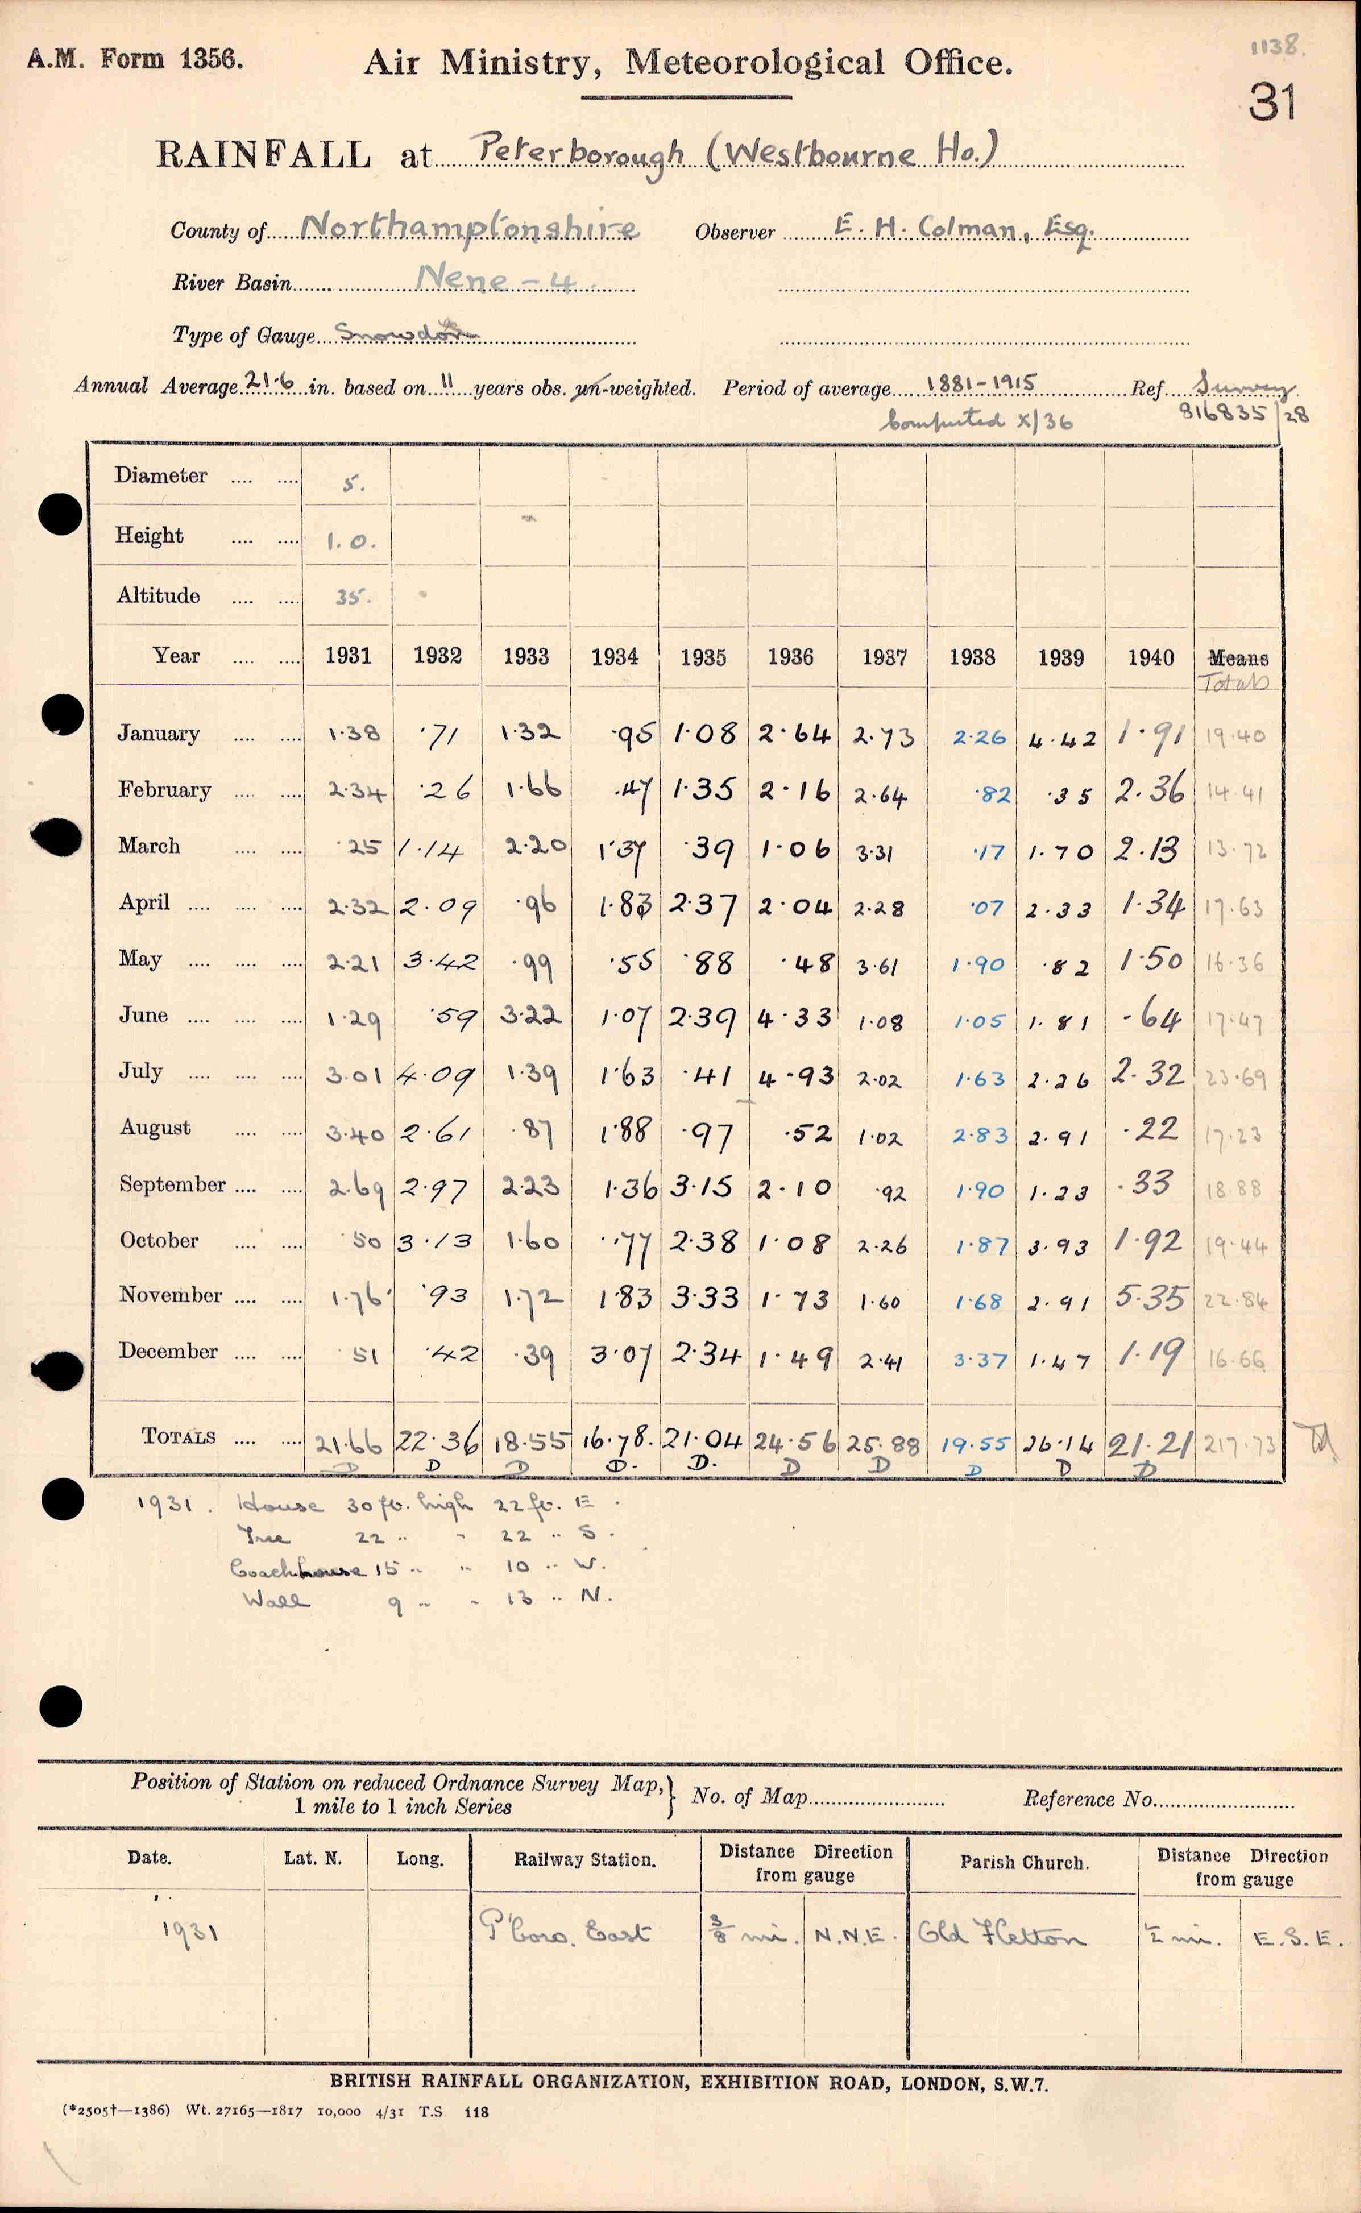 1138.
A.M. Form 1356. Air Ministry, Meteorological Office. 31
RAINFALL at Peterborough (Westbourne Ho.)
County of Northamptonshire Observer E. H. Colman, Esq.
River Basin Nene - 4.
Type of Gauge Snowdon
Annual Average 21.6 in. based on 11 years obs. un-weighted. Period of average 1881-1915 Ref. Survey
Computed X/36 816835/28
Diameter .... .... 5.
Height .... .... 1.0.
Altitude .... .... 35.
Year .... .... 1931 1932 1933 1934 1935 1936 1937 1938 1939 1940 Means
Totals
January .... .... 1.38 .71 1.32 .95 1.08 2.64 2.73 2.26 4.42 1.91 19.40
February .... .... 2.34 .26 1.66 .47 1.35 2.16 2.64 .82 .35 2.36 14.41
March .... .... .25 1.14 2.20 1.37 .39 1.06 3.31 .17 1.70 2.13 13.72
April .... .... .... 2.32 2.09 .96 1.83 2.37 2.04 2.28 .07 2.33 1.34 17.63
May .... .... .... 2.21 3.42 .99 .55 .88 .48 3.61 1.90 .82 1.50 16.36
June .... .... .... 1.29 .59 3.22 1.07 2.39 4.33 1.08 1.05 1.81 .64 17.47
July .... .... .... 3.01 4.09 1.39 1.63 .41 4.93 2.02 1.63 2.26 2.32 23.69
August .... .... 3.40 2.61 .87 1.88 .97 .52 1.02 2.83 2.91 .22 17.23
September .... .... 2.69 2.97 2.23 1.36 3.15 2.10 .92 1.90 1.23 .33 18.88
October .... .... .50 3.13 1.60 .77 2.38 1.08 2.26 1.87 3.93 1.92 19.44
November .... .... 1.76 .93 1.72 1.83 3.33 1.73 1.60 1.68 2.91 5.35 22.84
December .... .... .51 .42 .39 3.07 2.34 1.49 2.41 3.37 1.47 1.19 16.66
TOTALS .... .... 21.66 22.36 18.55 16.78. 21.04 24.56 25.88 19.55 26.14 21.21 217.73
D D D D. D. D D D D D
1931. House 30 ft. high 22 ft. E.
Tree 22 " " 22 " S.
Coachhouse 15 " " 10 " W.
Wall 9 " " 13 " N.
Position of Station on reduced Ordnance Survey Map,} No. of Map Reference No.
1 mile to 1 inch Series
Date. Lat. N. Long. Railway Station. Distance Direction from gauge Parish Church. Distance Direction from gauge
1931 P'boro. East 3/8 mi. N.N.E. Old Fletton 1/2 mi. E.S.E.
BRITISH RAINFALL ORGANIZATION, EXHIBITION ROAD, LONDON, S.W.7.
(*2505†—1386) Wt. 27165—1817 10,000 4/31 T.S 118